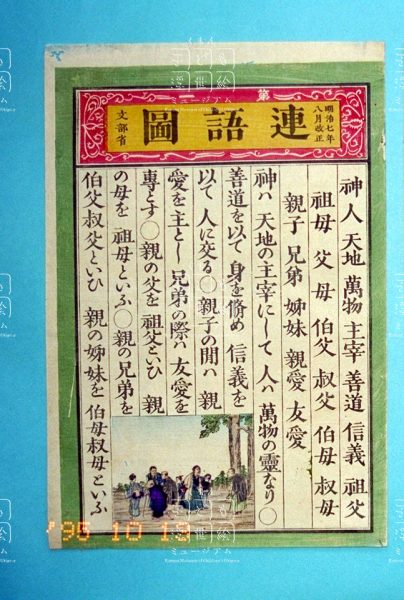 第一
連語圖
明治七年
八月改正
文部省
神人 天地 萬物 主宰 善道 信義 祖父
祖母 父 母 伯父 叔父 伯母 叔母
親子 兄弟 姉妹 親愛 友愛
神ハ 天地の主宰にして 人ハ 萬物の靈なり○
善道を以て 身を脩め 信義を
以て 人に交る○親子の間ハ 親
愛を主とし 兄弟の際ハ 友愛を
專とす○親の父を 祖父といひ 親
の母を 祖母といふ○親の兄弟を
伯父叔父といひ 親の姉妹を 伯母叔母といふ
'95 10 19